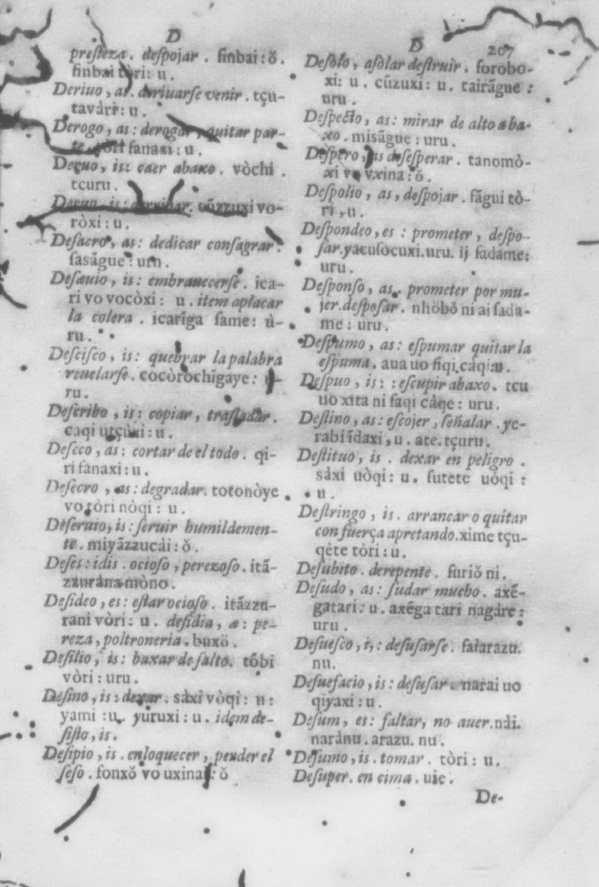 D
presteza. despojar. finbai: ŏ.
finbai tori: u.
Deriuo, as. deriuarse venir. tçu-
tavàri: u.
Derogo, as: derogar, quitar par-
te. tori fanaxi: u.
Decuo, is: caer abaxo. vòchi.
tcuru.
cūzzuxi vo-
ròxi: u.
Desacro, as: dedicar consagrar.
sasàgue: uru.
Desæuio, is: embrauecerse. ica-
ri vo vocòxi: u. item aplacar
la colera. icariga same: ù-
ru.
Descisco, is: quebrar la palabra
reuelarse. cocòrochigaye: u-
ru.
Describo, is: copiar, trasladar.
caqi utçuxi: u.
Deseco, as: cortar de el todo. qi-
ri fanaxi: u.
Desecro, as: degradar. totonòye
vo tòri nòqi: u.
Deseruio, is: seruir humildemen-
te. miyāzzucài: ŏ.
Deses: idis. ocioso, perezoso. itā-
zzurana mòno.
Desideo, es: estar ocioso. itāzzu-
rani vòri: u. desidia, æ: pe-
reza, poltroneria. buxŏ.
Desilio, is: baxar de salto. tòbi
vòri: uru.
Desino, is: dexar. sàxi vòqi: u:
yami: u. yuruxi: u. idem de-
sisto, is.
Desipio, is. enloquecer, perder el
seso. fonxŏ vo uxinai: ŏ
D 207
Desolo, asolar destruir. forobo-
xi: u. cūzuxi: u. tairāgue:
uru.
Despecto, as: mirar de alto aba-
xo. misāgue: uru.
Despero, as desesperar. tanomò-
xi vo vxina: ŏ.
Despolio, as, despojar. fāgui tò-
ri, u.
Despondeo, es: prometer, despo-
sar. yacusocuxi. uru. ij sadame:
uru.
Desponso, as. prometer por mu-
jer. desposar. nhŏbŏ ni ai sada-
me: uru.
Despumo, as: espumar quitar la
espuma. aua uo fiqi càqi: u.
Despuo, is: : escupir abaxo. tcu
uo xita ni faqi càqe: uru.
Destino, as: escojer, señalar. ye-
rabi idaxi, u. ate. tçuru.
Destituo, is. dexar en peligro.
sàxi uòqi: u. sutete uòqi:
u.
Destringo, is. arrancar o quitar
con fuerça apretando. xime tçu-
qète tòri: u.
Desubito. derepente. furiŏ ni.
Desudo, as: sudar mucho. axē-
gatari: u. axēga tari nagàre:
uru.
Desuesco, is: desusarse. fatarazu.
nu.
Desuefacio, is: desusar. narai uo
qiyaxi: u.
Desum, es: faltar, no auer. nài.
narànu. arazu. nu.
Desumo, is. tomar. tòri: u.
Desuper. en cima. uie.
De-